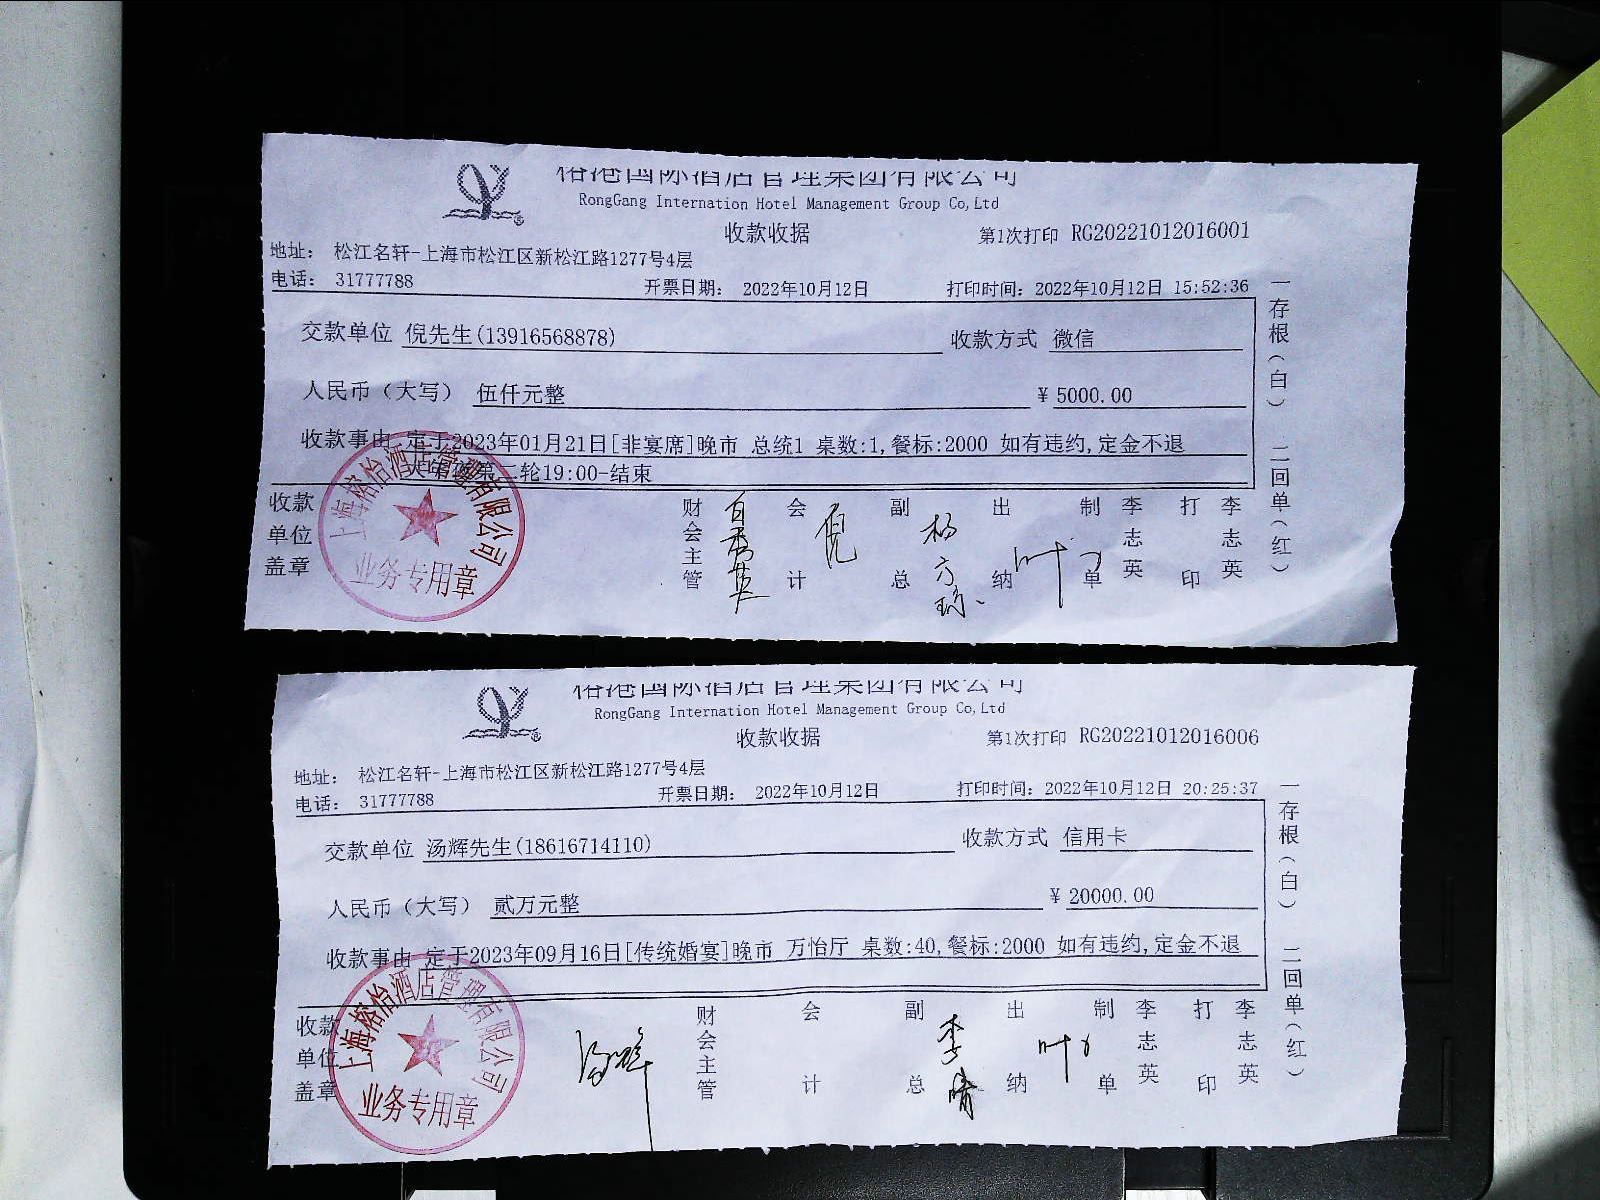 榕港国际酒店管理集团有限公司
RongGang Internation Hotel Management Group Co,Ltd
收款收据
第1次打印 RG20221012016001
地址： 松江名轩-上海市松江区新松江路1277号4层
电话： 31777788 开票日期： 2022年10月12日 打印时间：2022年10月12日 15:52:36
交款单位 倪先生(13916568878) 收款方式 微信
人民币（大写） 伍仟元整 ￥5000.00
收款事由 定于2023年01月21日[非宴席]晚市 总统1 桌数:1,餐标:2000 如有违约,定金不退
第二轮19:00-结束
收款单位盖章
上海榕怡酒店管理有限公司
业务专用章
财会主管 会计 倪 副总 杨 出纳 叶 制单 李志英 打印 李志英
一存根（白） 二回单（红）
榕港国际酒店管理集团有限公司
RongGang Internation Hotel Management Group Co,Ltd
收款收据
第1次打印 RG20221012016006
地址： 松江名轩-上海市松江区新松江路1277号4层
电话： 31777788 开票日期： 2022年10月12日 打印时间：2022年10月12日 20:25:37
交款单位 汤辉先生(18616714110) 收款方式 信用卡
人民币（大写） 贰万元整 ￥20000.00
收款事由 定于2023年09月16日[传统婚宴]晚市 万怡厅 桌数:40,餐标:2000 如有违约,定金不退
收款单位盖章
上海榕怡酒店管理有限公司
业务专用章
汤辉 财会主管 会计 副总 李晴 出纳 叶 制单 李志英 打印 李志英
一存根（白） 二回单（红）